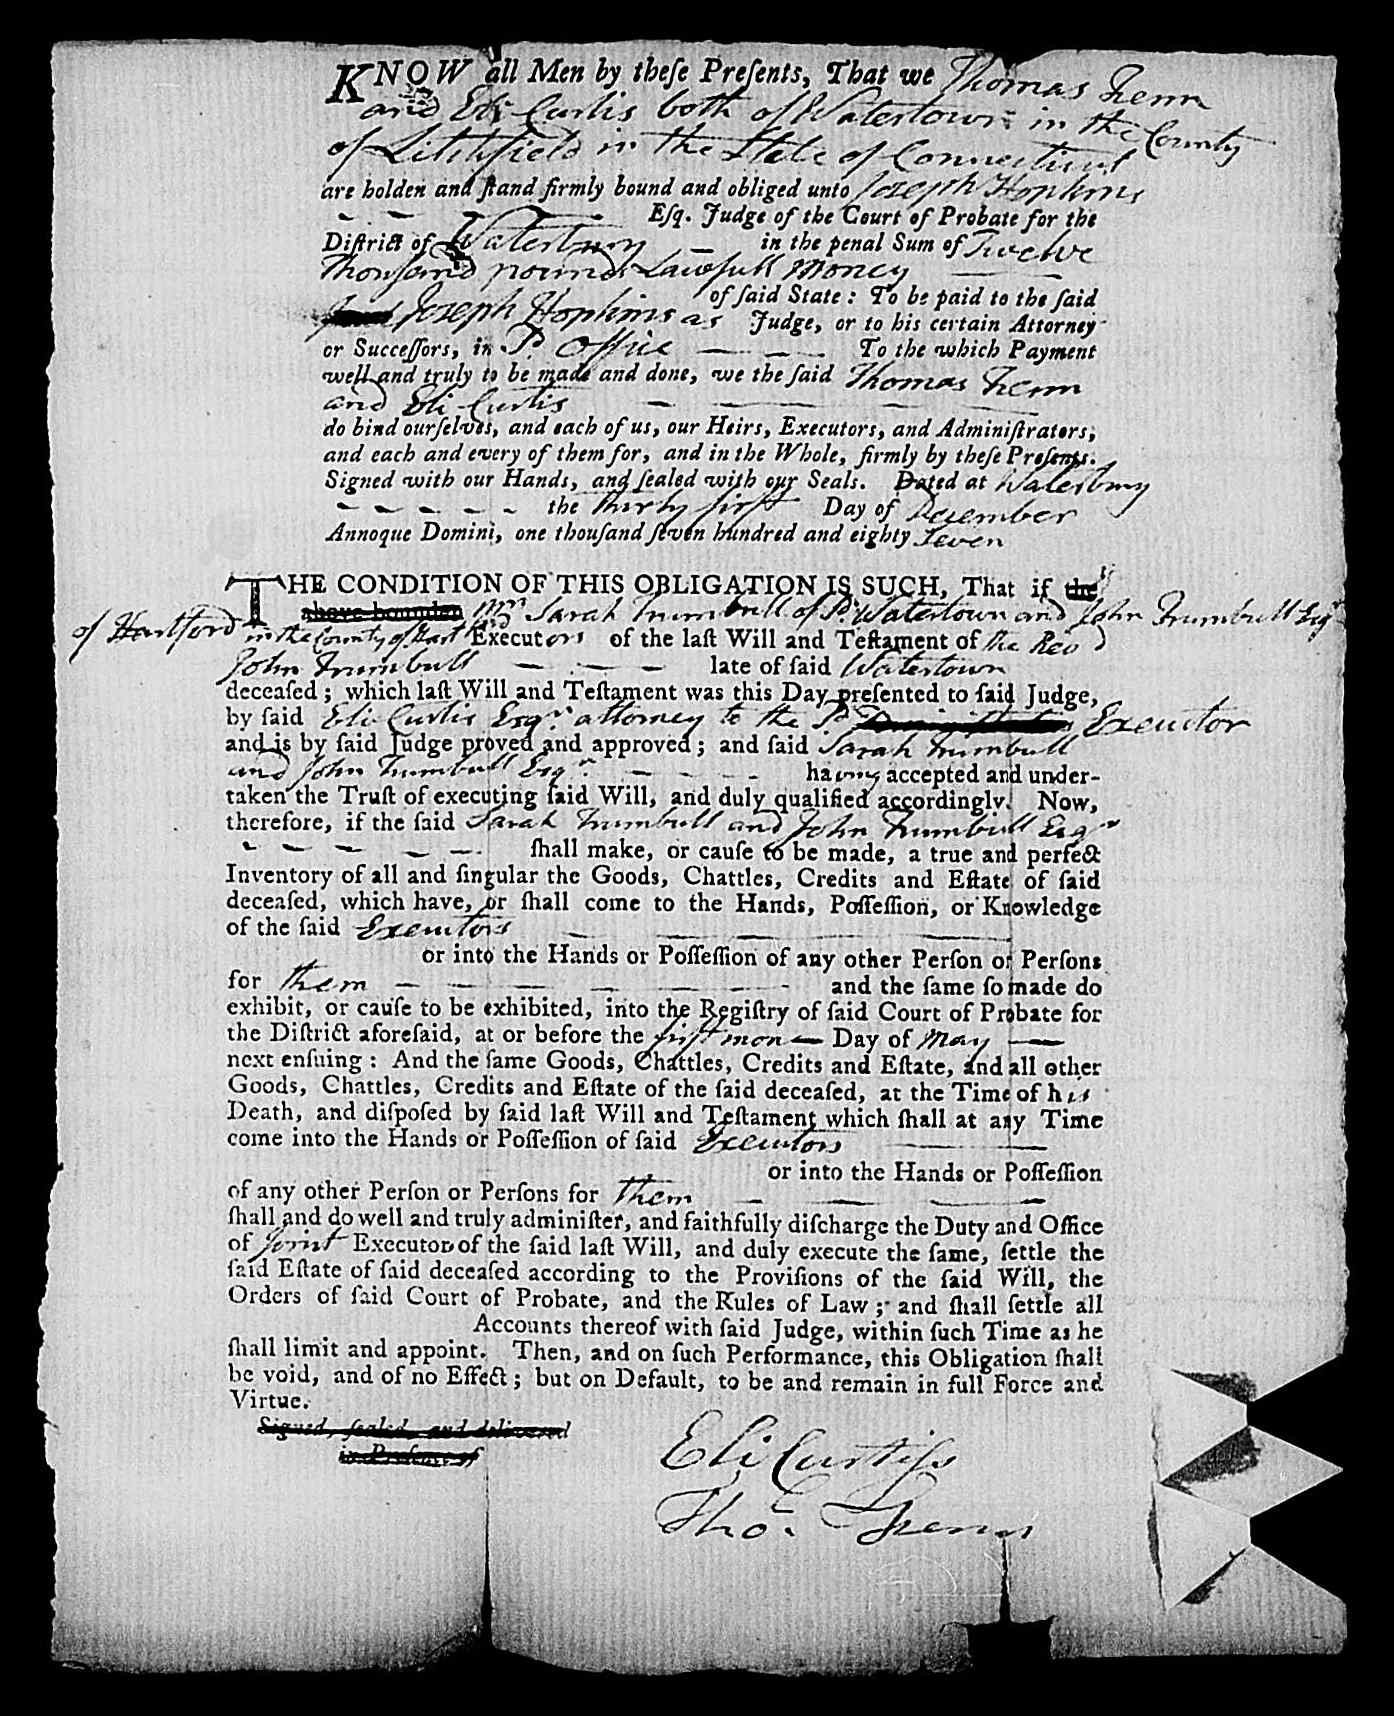 KNOW all Men by theſe Preſents, That we Thomas Fenn
and Eli Curtis both of Watertown in the County
of Litchfield in the State of Connecticut
are holden and ſtand firmly bound and obliged unto Joseph Hopkins
Eſq. Judge of the Court of Probate for the
Diſtrict of Waterbury in the penal Sum of Twelve
Thouſand pounds Lawfull Money
of ſaid State: To be paid to the ſaid
Joseph Hopkins as Judge, or to his certain Attorney
or Succeſſors, in sd. Office To the which Payment
well and truly to be made and done, we the ſaid Thomas Fenn
and Eli Curtis
do bind ourſelves, and each of us, our Heirs, Executors, and Adminiſtrators,
and each and every of them for, and in the Whole, firmly by theſe Preſents.
Signed with our Hands, and ſealed with our Seals. Dated at Waterbury
the thirty firſt Day of December
Annoque Domini, one thouſand ſeven hundred and eighty Seven
THE CONDITION OF THIS OBLIGATION IS SUCH, That if the
above bounden Mrs Sarah Trumbull of sd. Watertown and John Trumbull Esqr
of Hartford in the County of Hartford Executors of the laſt Will and Teſtament of the Revd
John Trumbull late of ſaid Watertown
deceaſed; which laſt Will and Teſtament was this Day preſented to ſaid Judge,
by ſaid Eli Curtis Esqr. attorney to the sd. Executor
and is by ſaid Judge proved and approved; and ſaid Sarah Trumbull
and John Trumbull Esqr. having accepted and under-
taken the Truſt of executing ſaid Will, and duly qualified accordingly. Now,
therefore, if the ſaid Sarah Trumbull and John Trumbull Esqr
ſhall make, or cauſe to be made, a true and perfect
Inventory of all and ſingular the Goods, Chattles, Credits and Eſtate of ſaid
deceaſed, which have, or ſhall come to the Hands, Poſſeſſion, or Knowledge
of the ſaid Executors
or into the Hands or Poſſeſſion of any other Perſon or Perſons
for them and the ſame ſo made do
exhibit, or cauſe to be exhibited, into the Regiſtry of ſaid Court of Probate for
the Diſtrict aforeſaid, at or before the firſt mon Day of May
next enſuing: And the ſame Goods, Chattles, Credits and Eſtate, and all other
Goods, Chattles, Credits and Eſtate of the ſaid deceaſed, at the Time of his
Death, and diſpoſed by ſaid laſt Will and Teſtament which ſhall at any Time
come into the Hands or Poſſeſſion of ſaid Executors
or into the Hands or Poſſeſſion
of any other Perſon or Perſons for them
ſhall and do well and truly adminiſter, and faithfully diſcharge the Duty and Office
of Joint Executors of the ſaid laſt Will, and duly execute the ſame, ſettle the
ſaid Eſtate of ſaid deceaſed according to the Proviſions of the ſaid Will, the
Orders of ſaid Court of Probate, and the Rules of Law; and ſhall ſettle all
Accounts thereof with ſaid Judge, within ſuch Time as he
ſhall limit and appoint. Then, and on ſuch Performance, this Obligation ſhall
be void, and of no Effect; but on Default, to be and remain in full Force and
Virtue.
Signed, ſealed, and delivered
in Preſence of
Eli Curtiſs
Thos. Fenn